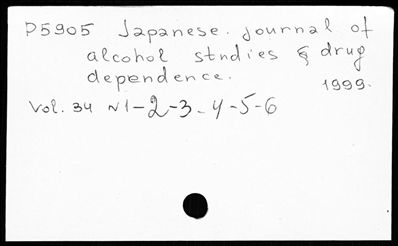 P5905 Japanese. journal of
alcohol studies & drug
dependence.
1999.
Vol. 34 N1-2-3-4-5-6